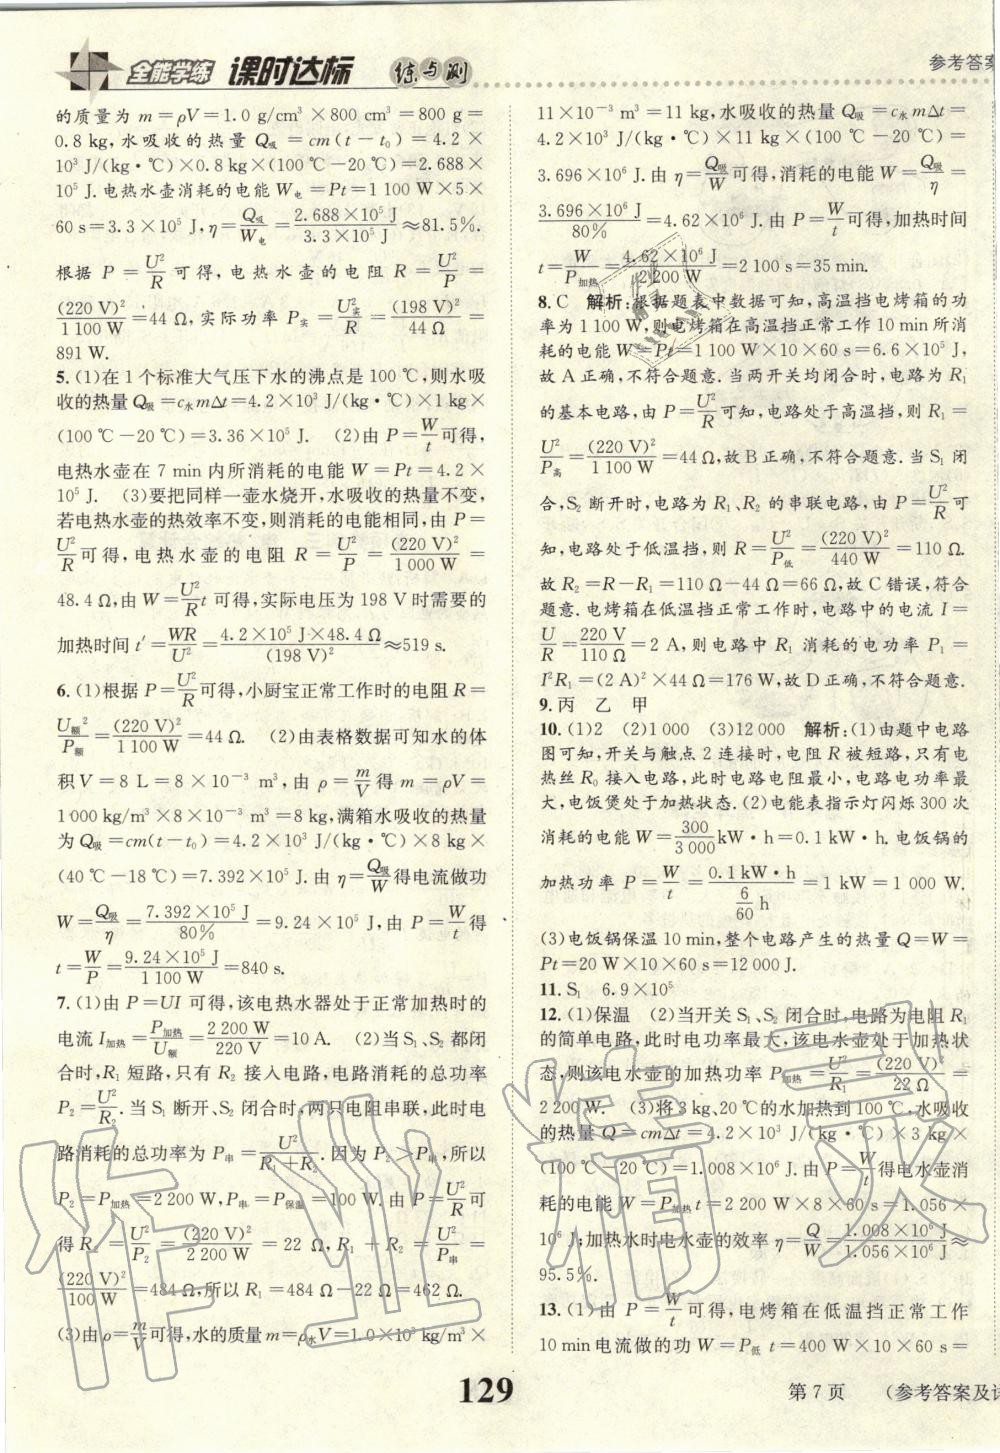 全能学练 课时达标 练与测
参考答案
的质量为 m=ρV=1.0 g/cm³×800 cm³=800 g=
0.8 kg,水吸收的热量 Q吸=cm(t-t₀)=4.2×
10³ J/(kg·℃)×0.8 kg×(100 ℃-20 ℃)=2.688×
10⁵ J.电热水壶消耗的电能 W电=Pt=1 100 W×5×
60 s=3.3×10⁵ J,η=Q吸/W电=2.688×10⁵ J/3.3×10⁵ J≈81.5%.
根据 P=U²/R可得,电热水壶的电阻 R=U²/P=
(220 V)²/1 100 W=44 Ω,实际功率 P实=U实²/R=(198 V)²/44 Ω=
891 W.
5.(1)在1个标准大气压下水的沸点是100 ℃,则水吸
收的热量Q吸=c水mΔt=4.2×10³ J/(kg·℃)×1 kg×
(100 ℃-20 ℃)=3.36×10⁵ J. (2)由 P=W/t可得,
电热水壶在 7 min 内所消耗的电能 W=Pt=4.2×
10⁵ J. (3)要把同样一壶水烧开,水吸收的热量不变,
若电热水壶的热效率不变,则消耗的电能相同,由 P=
U²/R可得,电热水壶的电阻 R=U²/P=(220 V)²/1 000 W=
48.4 Ω,由W=U²/R t 可得,实际电压为 198 V时需要的
加热时间 t′=WR/U²=4.2×10⁵ J×48.4 Ω/(198 V)²≈519 s.
6.(1)根据 P=U²/R可得,小厨宝正常工作时的电阻R=
U额²/P额=(220 V)²/1 100 W=44 Ω. (2)由表格数据可知水的体
积V=8 L=8×10⁻³ m³,由 ρ=m/V得 m=ρV=
1 000 kg/m³×8×10⁻³ m³=8 kg,满箱水吸收的热量
为Q吸=cm(t-t₀)=4.2×10³ J/(kg·℃)×8 kg×
(40 ℃-18 ℃)=7.392×10⁵ J.由 η=Q吸/W得电流做功
W=Q吸/η=7.392×10⁵ J/80%=9.24×10⁵ J,由 P=W/t得
t=W/P=9.24×10⁵ J/1 100 W=840 s.
7.(1)由 P=UI 可得,该电热水器处于正常加热时的
电流 I加热=P加热/U额=2 200 W/220 V=10 A. (2)当S₁、S₂都闭
合时,R₁短路,只有 R₂ 接入电路,电路消耗的总功率
P₂=U²/R₂.当 S₁ 断开、S₂ 闭合时,两只电阻串联,此时电
路消耗的总功率为 P串=U²/R₁+R₂.因为 P₂>P串,所以
P₂=P加热=2 200 W,P串=P保温=100 W.由P=U²/R可
得 R₂=U²/P₂=(220 V)²/2 200 W=22 Ω,R₁+R₂=U²/P串=
(220 V)²/100 W=484 Ω,所以 R₁=484 Ω-22 Ω=462 Ω.
(3)由ρ=m/V可得,水的质量m=ρ水V=1.0×10³ kg/m³×
11×10⁻³ m³=11 kg,水吸收的热量 Q吸=c水mΔt=
4.2×10³ J/(kg·℃)×11 kg×(100 ℃-20 ℃)=
3.696×10⁶ J.由 η=Q吸/W可得,消耗的电能 W=Q吸/η=
3.696×10⁶ J/80%=4.62×10⁶ J.由 P=W/t可得,加热时间
t=W/P加热=4.62×10⁶ J/2 200 W=2 100 s=35 min.
8.C 解析:根据题表中数据可知,高温挡电烤箱的功
率为1 100 W,则电烤箱在高温挡正常工作10 min所消
耗的电能 W=Pt=1 100 W×10×60 s=6.6×10⁵ J,
故 A 正确,不符合题意.当两开关均闭合时,电路为 R₁
的基本电路,由 P=U²/R可知,电路处于高温挡,则 R₁=
U²/P高=(220 V)²/1 100 W=44 Ω,故 B 正确,不符合题意.当 S₁ 闭
合,S₂ 断开时,电路为 R₁、R₂ 的串联电路,由 P=U²/R可
知,电路处于低温挡,则 R=U²/P低=(220 V)²/440 W=110 Ω.
故 R₂=R-R₁=110 Ω-44 Ω=66 Ω,故 C 错误,符合
题意.电烤箱在低温挡正常工作时,电路中的电流 I=
U/R=220 V/110 Ω=2 A,则电路中 R₁ 消耗的电功率 P₁=
I²R₁=(2 A)²×44 Ω=176 W,故D正确,不符合题意.
9.丙 乙 甲
10.(1)2 (2)1 000 (3)12 000 解析:(1)由题中电路
图可知,开关与触点 2 连接时,电阻 R 被短路,只有电
热丝 R₀ 接入电路,此时电路电阻最小,电路电功率最
大,电饭煲处于加热状态.(2)电能表指示灯闪烁 300 次
消耗的电能 W=300/3 000 kW·h=0.1 kW·h.电饭锅的
加热功率 P=W/t=0.1 kW·h/(6/60 h)=1 kW=1 000 W.
(3)电饭锅保温10 min,整个电路产生的热量 Q=W=
Pt=20 W×10×60 s=12 000 J.
11.S₁ 6.9×10⁵
12.(1)保温 (2)当开关S₁、S₂闭合时,电路为电阻R₁
的简单电路,此时电功率最大,该电水壶处于加热状
态,则该电水壶的加热功率 P加热=U²/R₁=(220 V)²/22 Ω=
2 200 W. (3)将3 kg、20 ℃的水加热到100 ℃,水吸收
的热量 Q=cmΔt=4.2×10³ J/(kg·℃)×3 kg×
(100 ℃-20 ℃)=1.008×10⁶ J.由 P=W/t得电水壶消
耗的电能 W=P加热t=2 200 W×8×60 s=1.056×
10⁶ J;加热水时电水壶的效率 η=Q/W=1.008×10⁶ J/1.056×10⁶ J≈
95.5%.
13.(1)由 P=W/t可得,电烤箱在低温挡正常工作
10 min电流做的功 W=P低t=400 W×10×60 s=
作业精灵
129
第 7 页 (参考答案及